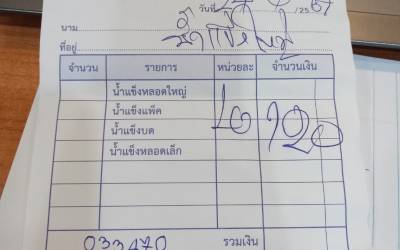 วันที่ /25 67
นาม
ที่อยู่
จำนวน รายการ หน่วยละ จำนวนเงิน
น้ำแข็งหลอดใหญ่
น้ำแข็งแพ็ค
น้ำแข็งบด
น้ำแข็งหลอดเล็ก
033470 รวมเงิน